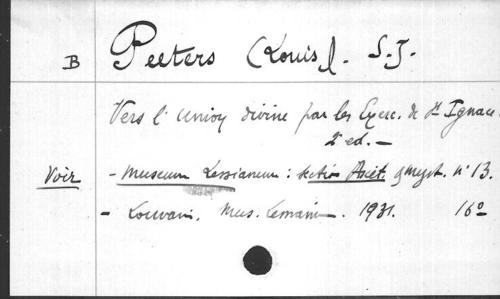 B Peeters (Louis). S.J.
Vers l'union divine par les Exerc. de St Ignace.
2e ed. —
Voir - Museum Lessianum: sectio Ascét. gmyst. n° 13.
- Louvain. Mus. Lessian. 1931. 16°